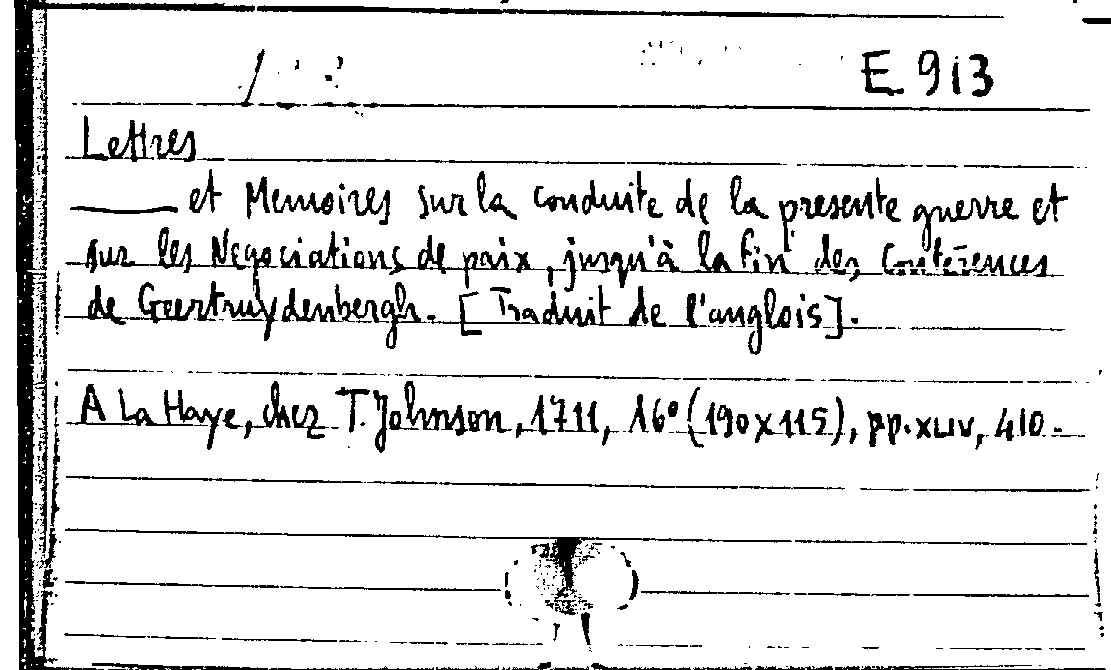 E 913
Lettres
——— et Memoires sur la conduite de la presente guerre et
sur les Negociations de paix, jusqu'à la fin des Conferences
de Geertruydenbergh. [Traduit de l'anglois].
A La Haye, chez T. Johnson, 1711, 16° (190x115), pp. XLIV, 410.